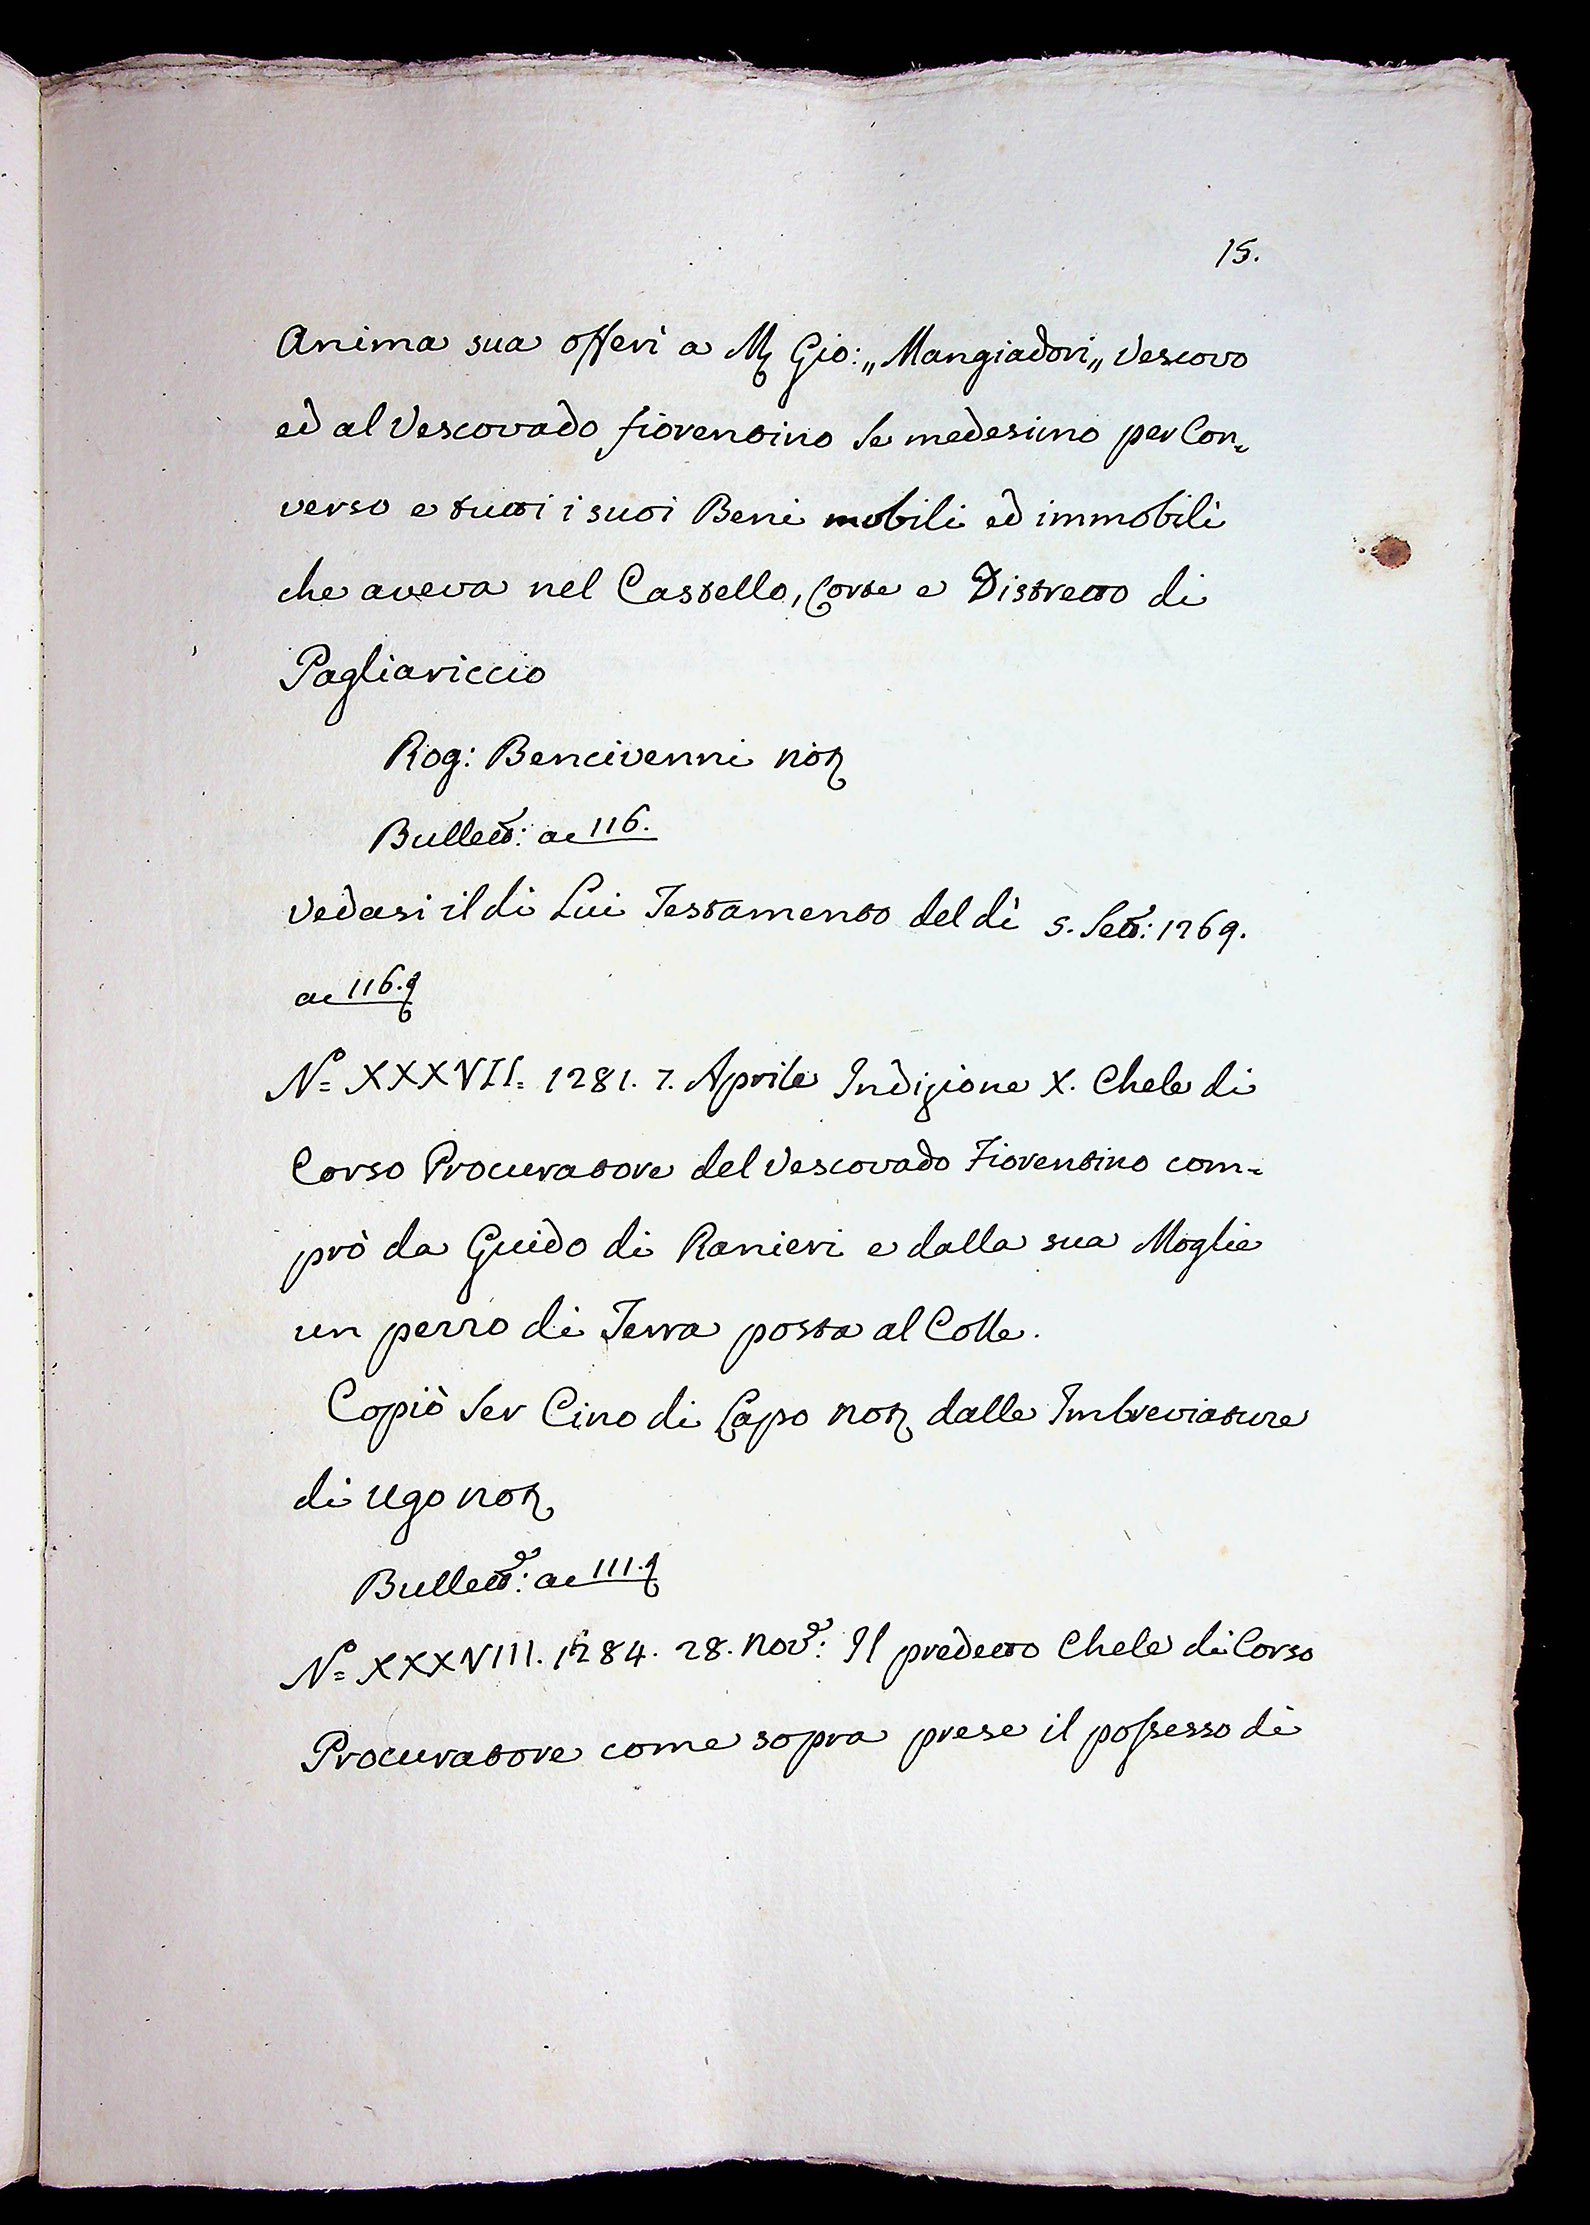 15.
Anima sua offerì a M. Gio: „Mangiadori„ Vescovo
ed al Vescovado fiorentino Se medesimo per Con=
verso e tutti i suoi Beni mobili ed immobili
che aveva nel Castello, Corte e Distretto di
Pagliariccio
Rog: Bencivenni not
Bullett: ac 116.
Vedasi il di Lui Testamento del dì 5. Sett: 1269.
ac 116.
N.º XXXVII. 1281. 7. Aprile Indizione X. Chele di
Corso Procuratore del Vescovado Fiorentino com=
prò da Guido di Ranieri e dalla sua Moglie
un pezzo di Terra posta al Colle.
Copiò Ser Cino di Lapo not dalle Imbreviature
di Ugo not
Bullett: ac 111.
N.º XXXVIII. 1284. 28. Nov: Il predetto Chele di Corso
Procuratore come sopra prese il possesso di